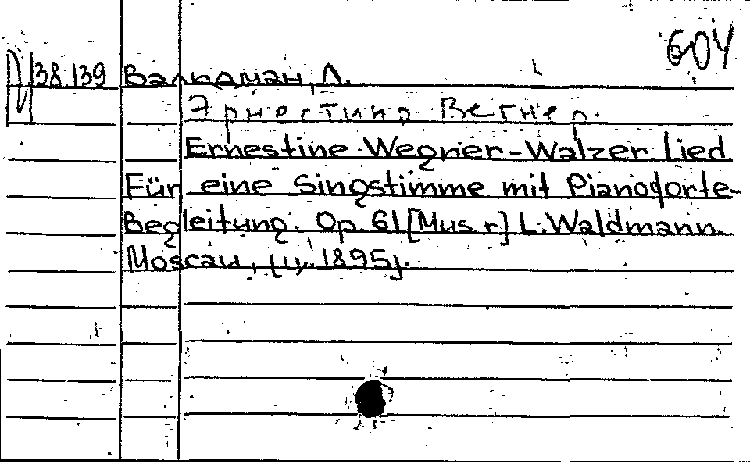 604
38.139 Вальдман, Л.
Эрнестина Вегнер.
Ernestine-Wegner-Walzer. Lied
Für eine Singstimme mit Pianoforte-
Begleitung. Op. 61 [Mus. r] L. Waldmann.
Moscau, (ц. 1895).